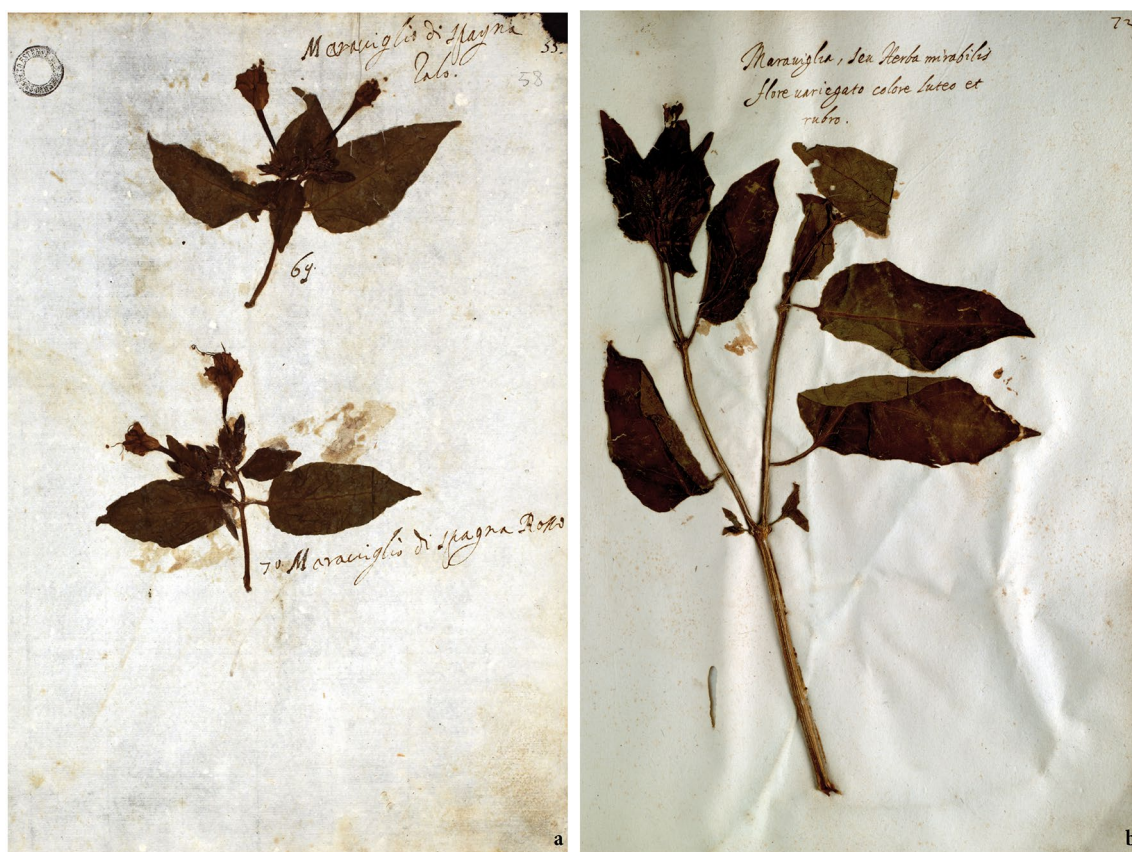 Maraviglio di spagna
Zalo.
55.
58
69.
70 Maraviglio di spagna Rosso
a
72
Maraviglia, seu Herba mirabilis
flore uariegato colore luteo et
rubro.
b